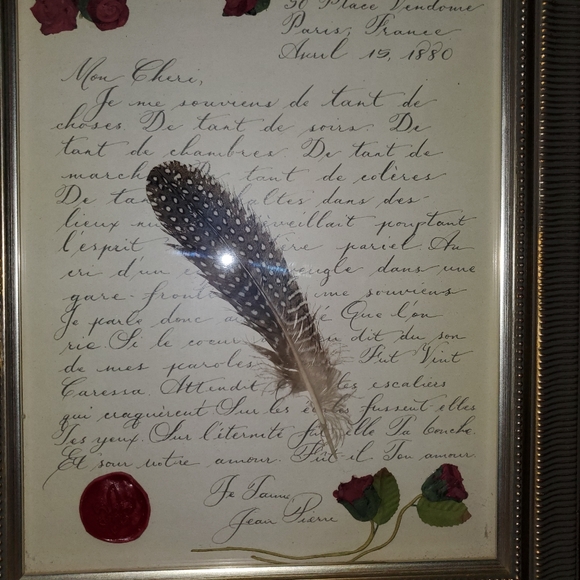 50 Place Vendome
Paris, France
Avril 15, 1880
Mon Cheri,
Je me souviens de tant de
choses. De tant de soirs. De
tant de chambres. De tant de
march tant de colères
De ta haltes dans des
lieux nu éveillait pourtant
l'esprit ère pariel. Au
cri d'un eugle dans une
gare-front me souviens
Je parle donc a é Que l'on
rie Si le coeur u dit du son
de mes paroles Fut Vint
Caressa. Attendit les escaliers
qui craquèrent Sur les fussent elles
Tes yeux. Sur l'éternité fut elle Ta bouche.
Et sour notre amour. Fut il Ton amour.
Je T'aime
Jean Pierre